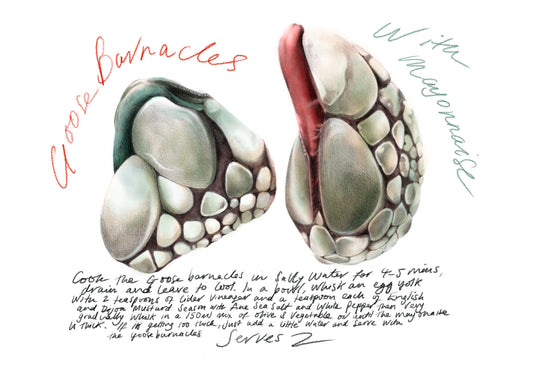 Goose Barnacles
With Mayonnaise
Cook the Goose barnacles in Salty Water for 4-5 mins,
drain and leave to Cool. In a bowl, Whisk an egg yolk
With 2 teaspoons of Cider Vinegar and a teaspoon each of English
and Dijon Mustard Season with Fine Sea Salt and White Pepper Then Very
gradually Whisk in a 150ml mix of olive & Vegetable oil until the mayonnaise
is thick. If it getting too thick, just add a little water and Serve With
the goose barnacles
Serves 2